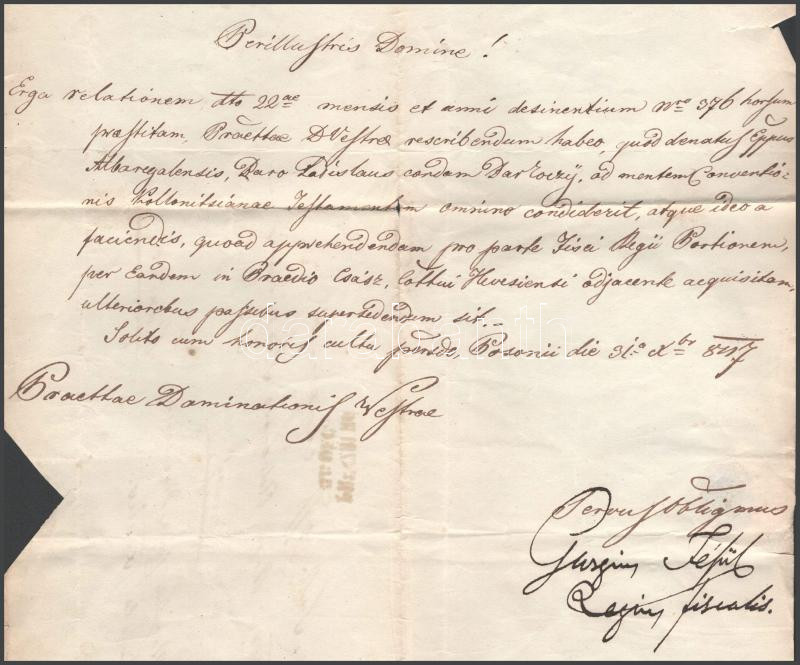 Perillustris Domine!
Erga relationem dtto 22ae mensis et anni desinentium Nro 376 horsum
præstitam, Præettae DVestræ rescribendum habeo, quod denatus Eppus
Albaregalensis, Baro Ladislaus condam Barkoczÿ, ad mentem Conventio-
nis Kollonitsianae Testamentum omnino condiderit, atque ideo a
faciendis, quoad apprehendendam pro parte Fisci Regii Portionem,
per Eundem in Praedio Csász, Cottui Hevesiensi adjacente acquisitam,
ulterioribus passibus supersedendum sit.
Solito cum honoris cultu persto Posonii die 31a Xbr 847
Praettae Dominationis Vestrae
Servus Obligmus
fiscalis.
darabanth